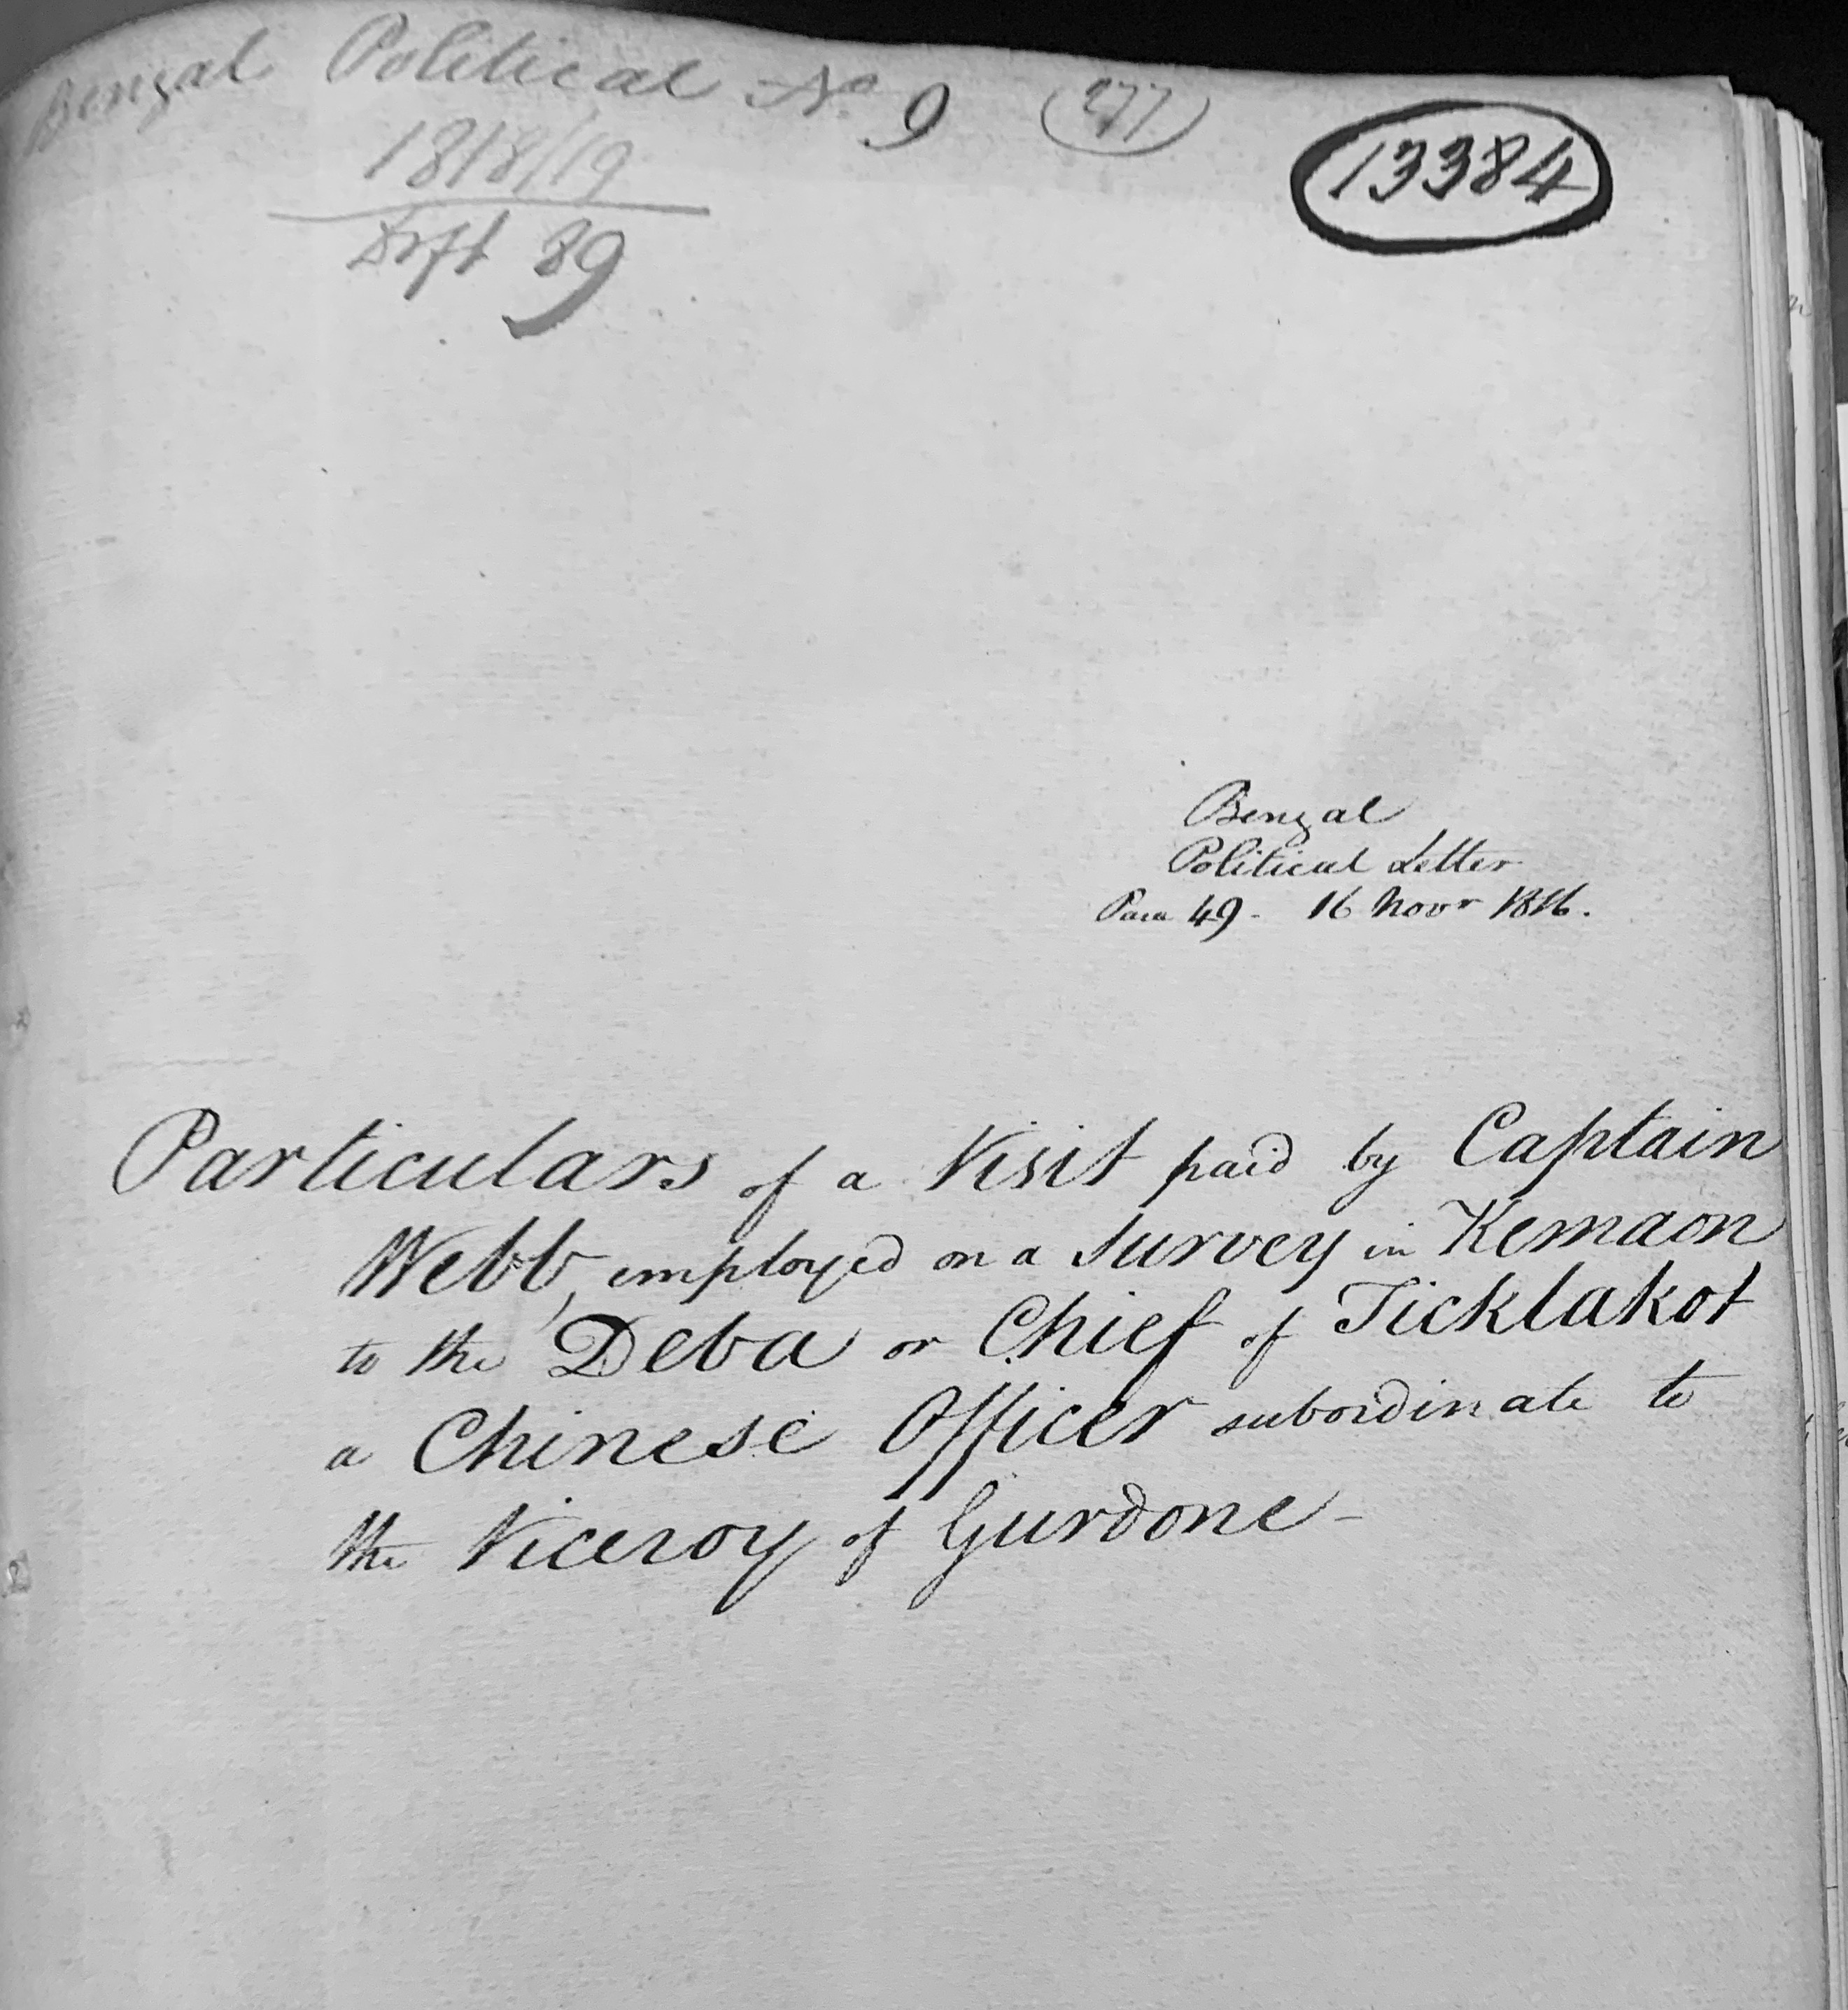 Bengal Political No 9 277
13384
1818/19
Drft 89
Bengal
Political Letter
Para 49 - 16 Novr 1816.
Particulars of a Visit paid by Captain
Webb, employed on a Survey in Kemaon
to the Deba or Chief of Ticklakot
a Chinese Officer subordinate to
the Viceroy of Gurdone -